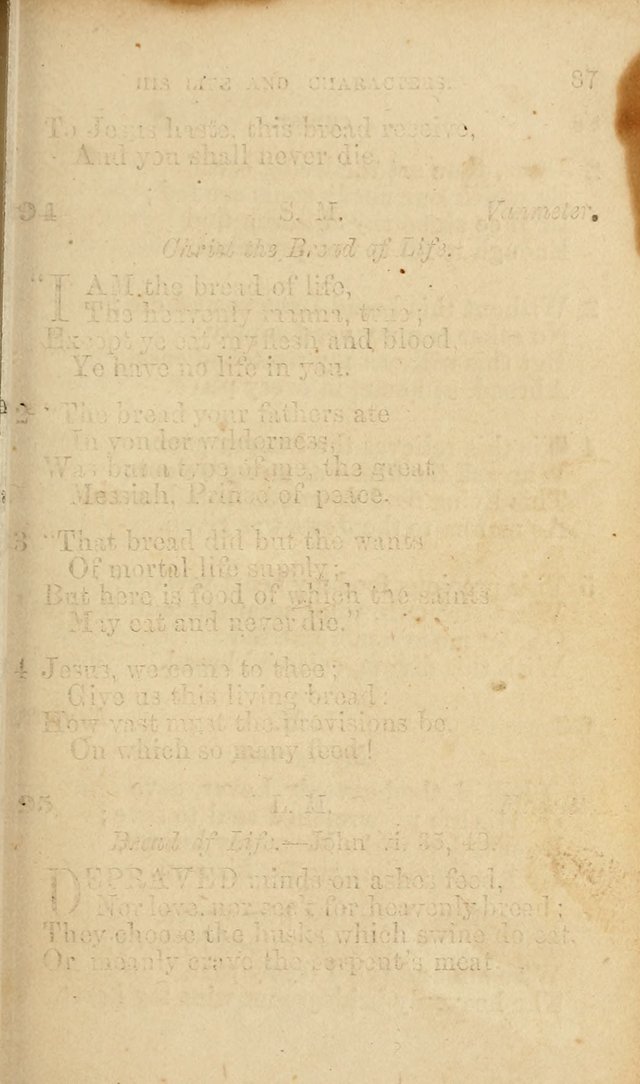 HIS LIFE AND CHARACTERS. 87
To Jesus haste, this bread receive,
And you shall never die.
94 S. M. Vanmeter.
Christ the Bread of Life.
"I AM the bread of life,
The heavenly manna, true;
Except ye eat my flesh and blood,
Ye have no life in you.
2 "The bread your fathers ate
In yonder wilderness,
Was but a type of me, the great
Messiah, Prince of peace.
3 "That bread did but the wants
Of mortal life supply;
But here is food of which the saints
May eat and never die."
4 Jesus, we come to thee;
Give us this living bread:
How vast must the provisions be,
On which so many feed!
95 L. M.
Bread of Life.—John vi. 35, 48.
DEPRAVED minds on ashes feed,
Nor love, nor seek for heavenly bread;
They choose the husks which swine do eat,
Or meanly crave the serpent's meat.